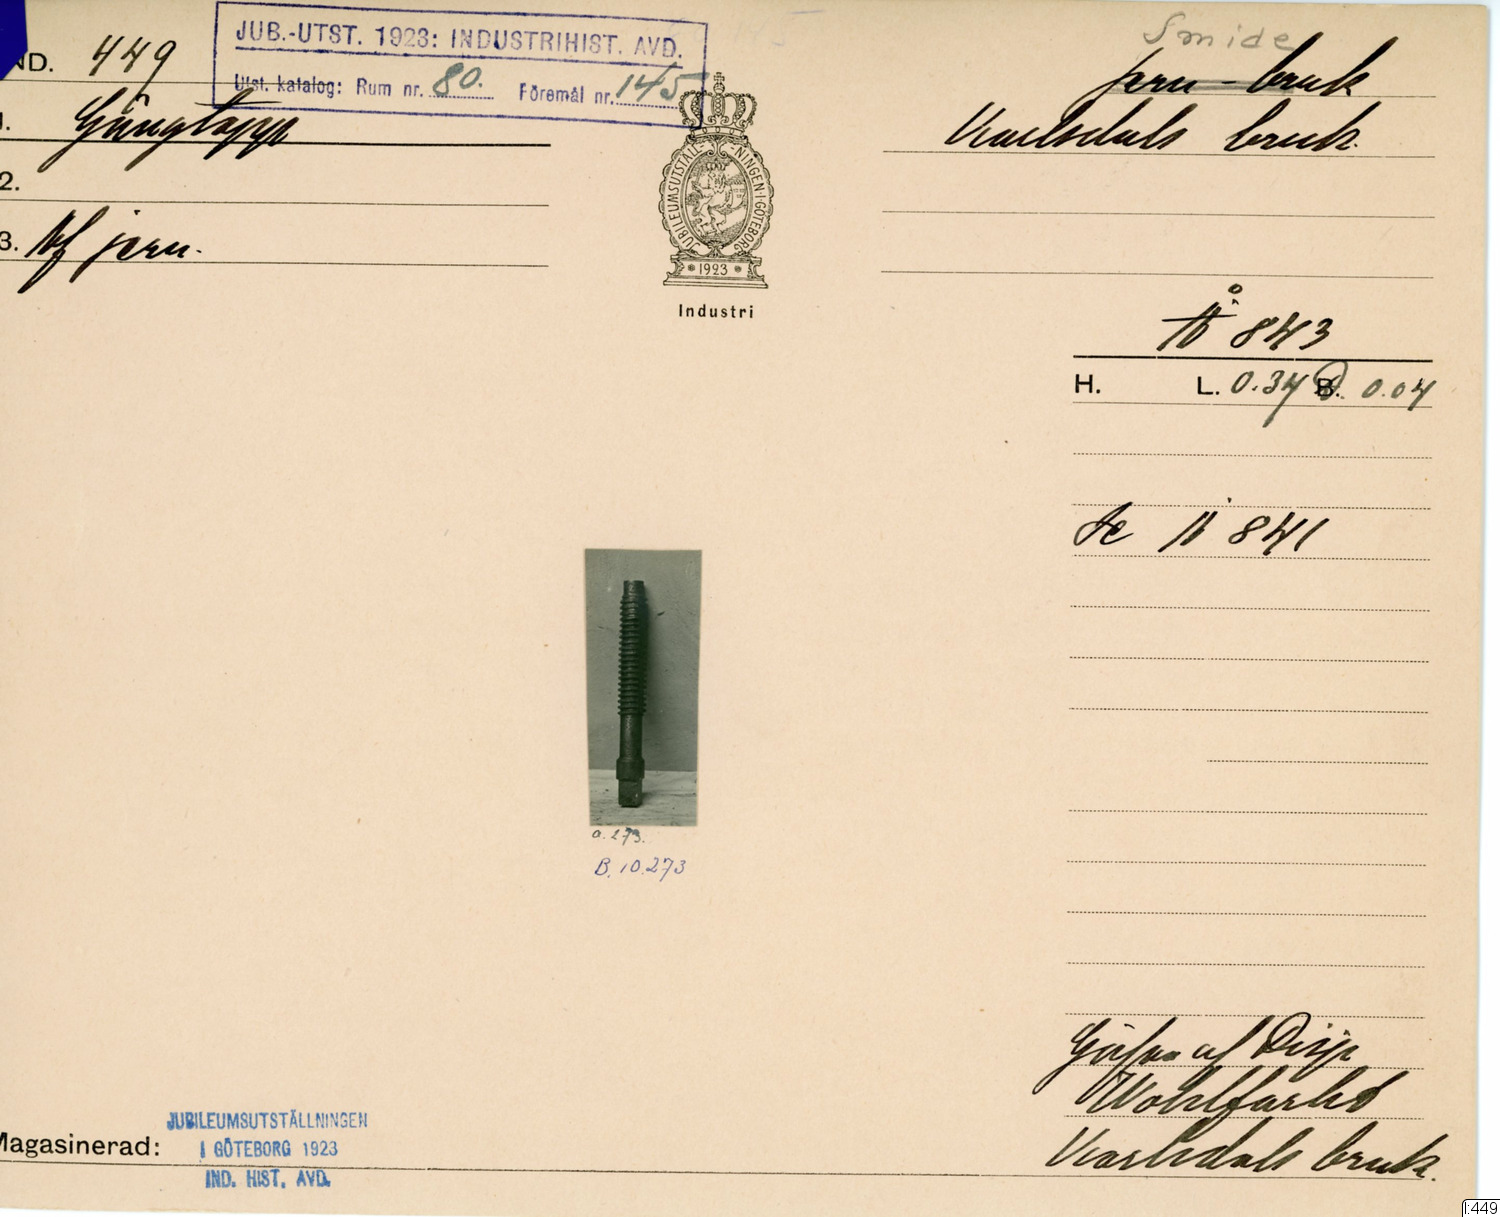 ND. 449
JUB.-UTST. 1923: INDUSTRIHIST. AVD.
Utst. katalog: Rum nr. 80. Föremål nr. 145
Smide
jern-bruk
1. Gängtapp
Karlsdals bruk.
2.
3. Af jern.
JUBILEUMSUTSTÄLL-NINGEN·I·GÖTEBORG
1923
Industri
N° 843
H. L. 0.34 B. D. 0.04
Se N 841
a. 273.
B. 10.273
Gåfva af Disp
Wohlfarth
Karlsdals bruk.
Magasinerad:
JUBILEUMSUTSTÄLLNINGEN
I GÖTEBORG 1923
IND. HIST. AVD.
I:449